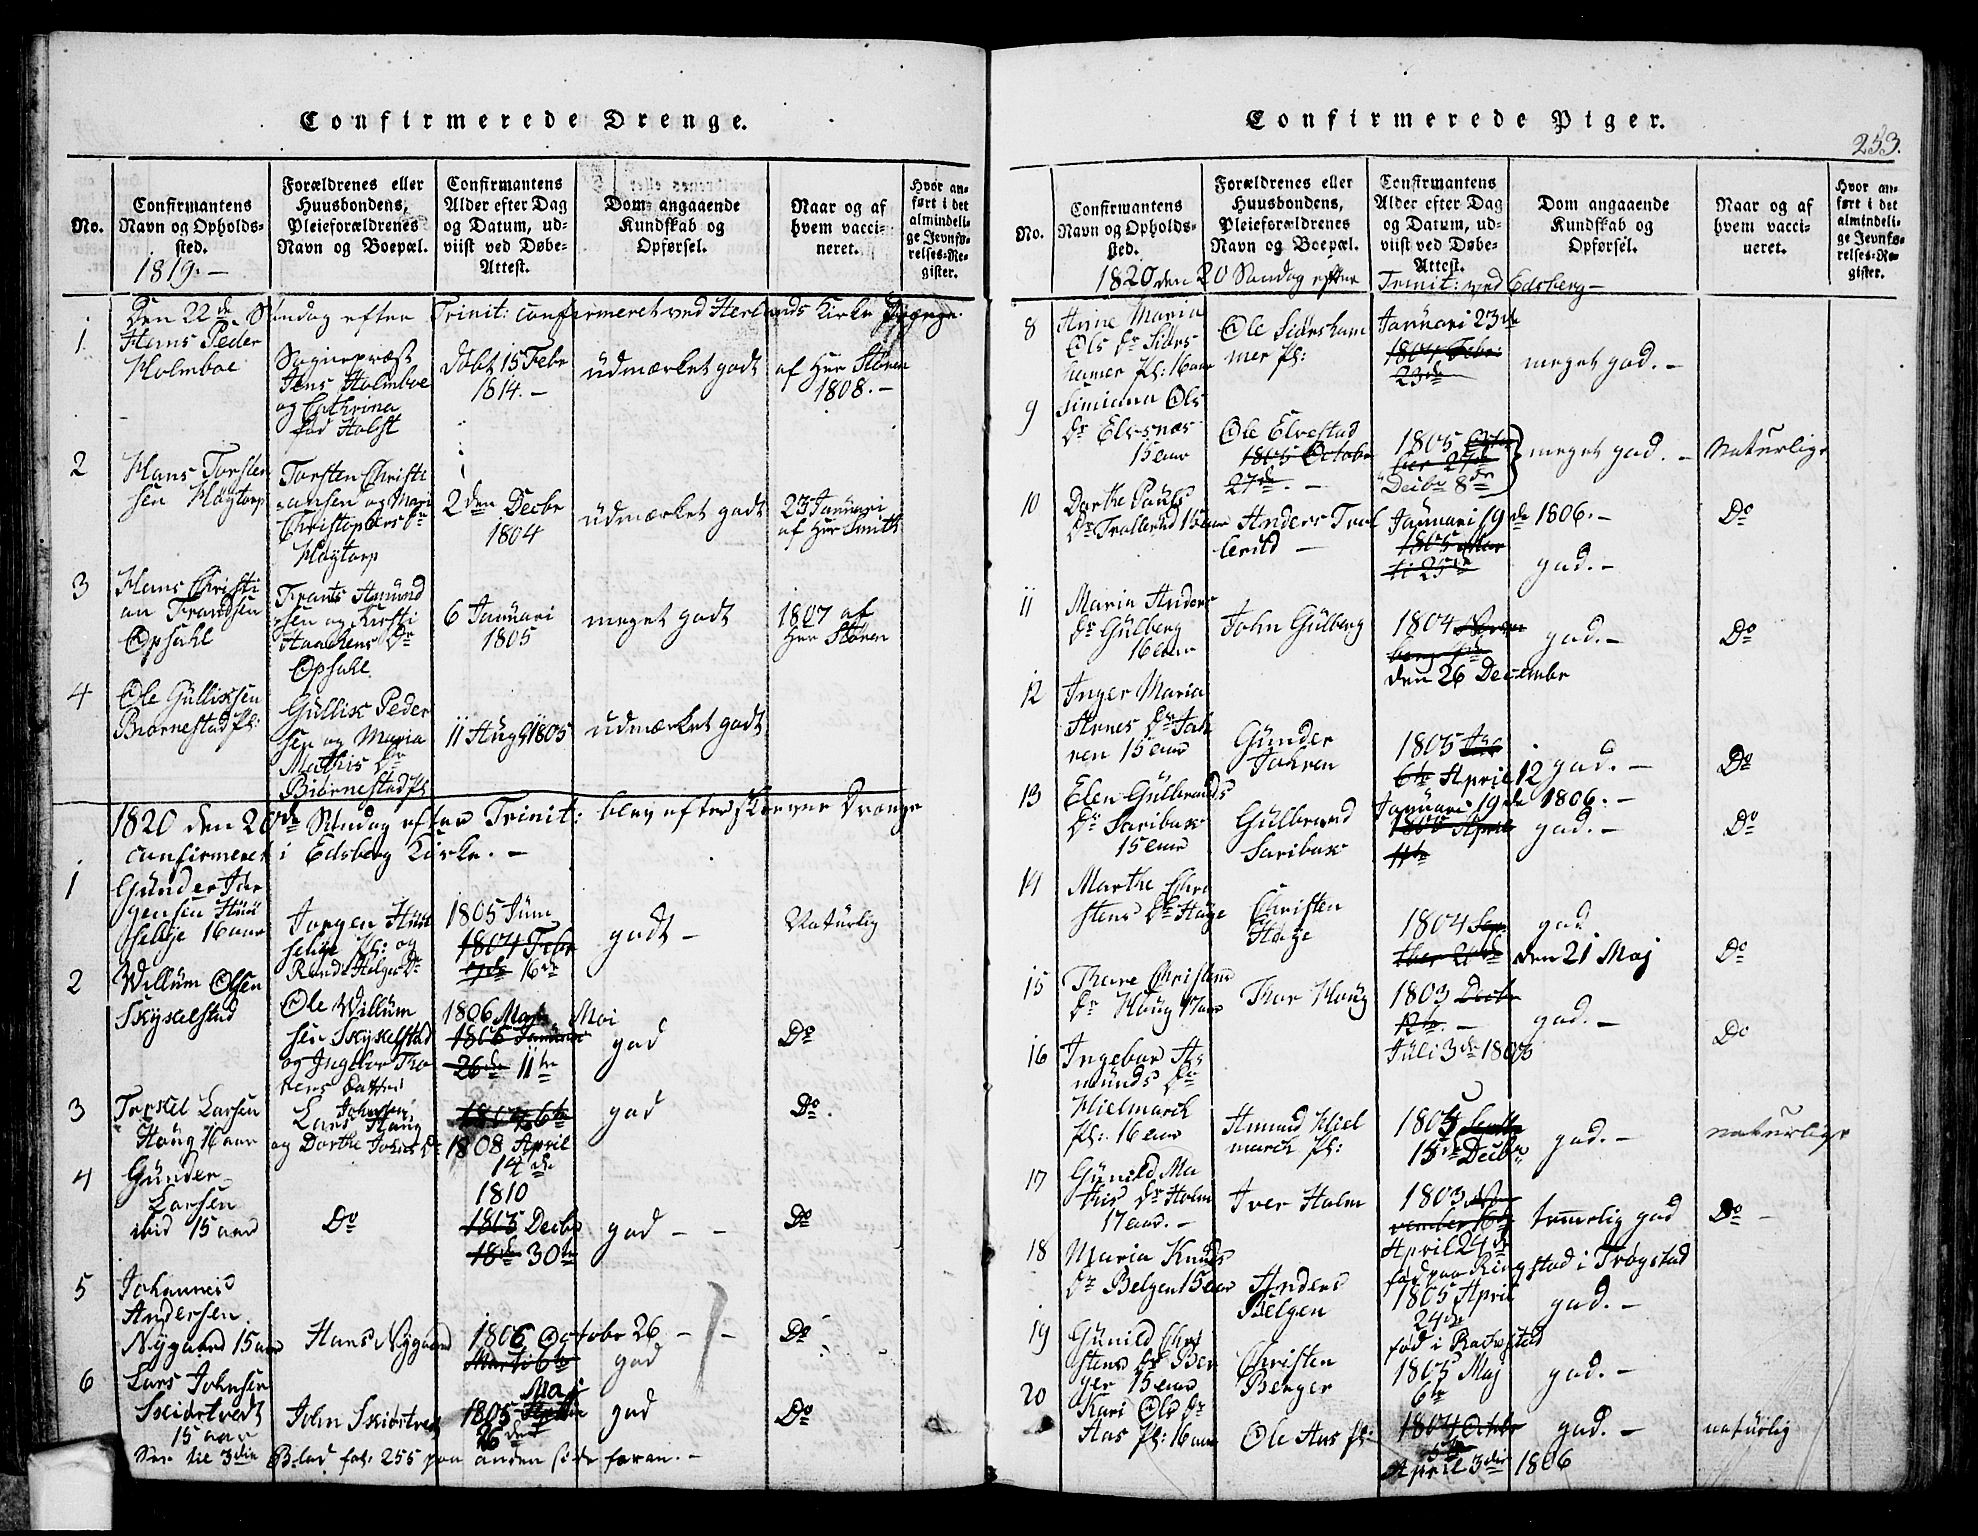 Confirmerede Drenge.
No.
Confirmantens
Navn og Opholds-
sted.
1819. —
Forældrenes eller
Huusbondens,
Pleieforældrenes
Navn og Boepæl.
Confirmantens
Alder efter Dag
og Datum, ud-
viist ved Døbe-
Attest.
Dom angaaende
Kundskab og
Opførsel.
Naar og af
hvem vacci-
neret.
Hvor an-
ført i det
almindeli-
ge Jevnfø-
relses-Re-
gister.
Den 22de Søndag efter Trinit: confirmeret ved Herlands Kirke
1
Hans Peder
Holmboe
Sognepræst
Jens Holmboe
og Cathrina
fød Holst
Døbt 15 Febr
1814. —
udmærket godt
af Herr Støren
1808. —
2
Hans Torsten
sen Høytorp
Torsten Christi
ansen og Mari
Christophers Dr
Høytorp
2den Decbr
1804
udmærket godt
23 Januari
af Herr Smith
3
Hans Christi
an Frandsen
Opsahl
Frants Amund
sen og Kirsti
Haachens Dr
Opsahl
6 Januari
1805
meget godt
1807 af
Herr Støren
4
Ole Gullixsen
Biørnestad Pl:
Gullix Peder
sen og Maria
Mathis Dr
Biørnestad Pl
11 Aug 1805
udmærket godt
1820 den 20de Søndag efter Trinit: blev efterskrevne Drenge
confirmeret i Edsberg Kirke. —
1
Gunder Jør
gensen
selye 16 aar
Jørgen
selye Pl: og
Rande Helges Dr
1805 Juni
1804 Febr
16de
godt —
Naturlig
2
Willum Olsen
Skyselstad
Ole Willum
sen Skyselstad
og Ingebor Tho
rers Datter
1806 Maj Mai
1806 Januar
26de 11te
god
Do
3
Torkel Larsen
Haug 16 aar
Lars Johnsen
Haug
og Dorthe Johns Dr
1804 6te
1808 April
14de
god
Do.
4
Gunder
Larsen
ibid 15 aar
Do
1810
1805 Decbr
18de 30te
god — —
Do
5
Johannes
Andersen
Nygaard 15 aar
Hans Nygaard
1806 Octobr 26 — —
Marti 6te
god
Do
6
Lars Johnsen
Skiørtvedt
15 aar
John Skiørtvedt
Maji
1805
26de
god
Do
See til 3die Blad fol: 255 paa anden side foran. —
Confirmerede Piger.
253.
No.
Confirmantens
Navn og Opholds-
sted.
Forældrenes eller
Huusbondens,
Pleieforældrenes
Navn og Boepæl.
Confirmantens
Alder efter Dag
og Datum, ud-
viist ved Døbe-
Attest.
Dom angaaende
Kundskab og
Opførsel.
Naar og af
hvem vacci-
neret.
Hvor an-
ført i det
almindeli-
ge Jevnfø-
relses-Re-
gister.
1820 den 20 Søndag efter Trinit: ved Edsberg —
8
Anne Maria
Ols Dr Siørs
hamer Pl: 16 aar
Ole Siørsham
mer Pl:
Januari 23de
1804 Febr:
23de
meget god. —
9
Simiana Ols
Dr Elvsnæs
15 aar
Ole Elvestad
1805 Octobr
27de. —
1805 Octo
ber 27de
Decbr 8de
meget god. —
Naturlige
10
Dorthe Pauls
Dr Trollerud 15 aar
Anders Trol
lerud —
Januari 19de 1806. —
1805 Mar
ti 25de
god. —
Do
11
Maria Anders
Dr Gulberg
16 aar
John Gulberg
1804 Novem
ber
den 26 Decembr
god. —
Do
12
Inger Maria
Arnes Dr Joh
ren 15 aar
Gunder
Johren
1805
6te April 12
god. —
Do
13
Elen Gulbrands
Dr Saribax
15 aar
Gulbrand
Saribax
Januari 19de 1806. —
1805 April
11te
god. —
Do
14
Marthe Chri
stens Dr Hage
Christen
Hage
1804 Sep
tber 21de den 21 Maj
god
Do
15
Thore Christens
Dr Haug 17 aar
Thor Haug
1803 Decbr
12te. —
god. —
Do
16
Ingebor As
munds Dr
Hielmarck
Pl: 16 aar
Amund Hiel
march Pl:
Juli 3de 1805
1803
15de Decbr
god. —
naturlige
17
Gunild Ma
this Dr Holm
17 aar. —
Iver Holm
1803 No
vember 16de
temelig god
Do —
18
Maria Knuds
Dr Belgen 15 aar
Anders
Belgen
April 24de
fød paa Ringstad i Trøgstad
1805 April
24de
god. —
19
Gunild Chri
stens Dr Ber
ger 15 aar
Christen
Berger
fød i Rachestad
1805 Maj
6te
god. —
20
Kari Ols Dr
Aas Pl: 16 aar
Ole Aas Pl:
1804 Octobr
5te
April 3die 1806
god. —
naturlig